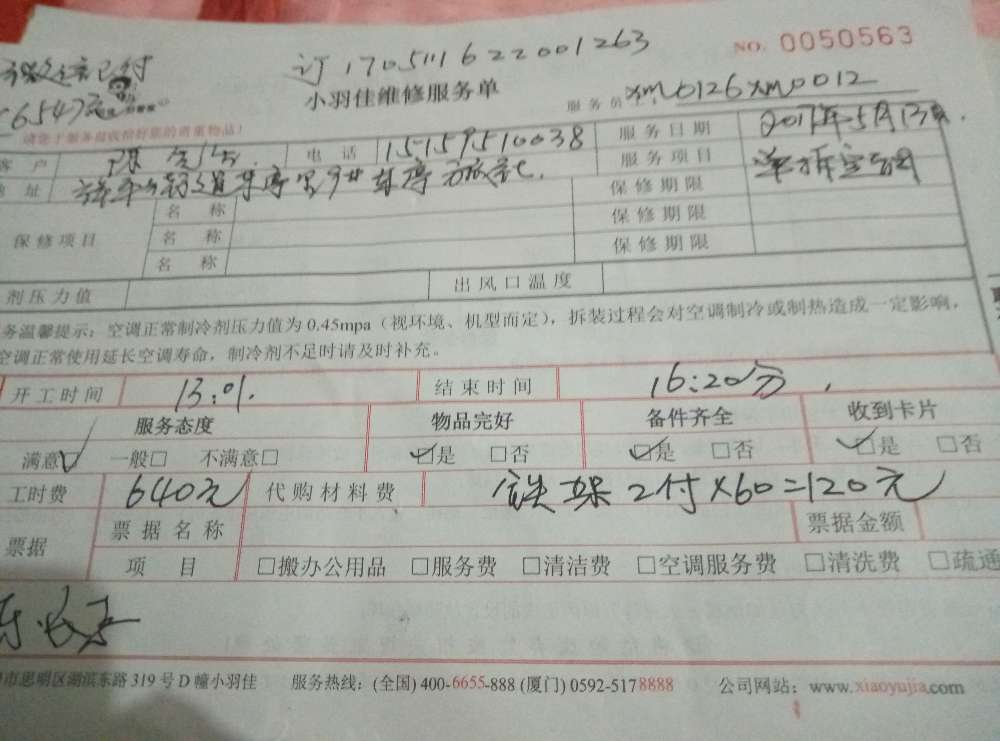 订1705111622001263
NO. 0050563
小羽佳维修服务单
服务员 xm0126xm0012
户 电话 15159510038 服务日期 2017年5月13日
址 服务项目
保修期限
保修项目 名称 保修期限
名称 保修期限
名称
剂压力值 出风口温度
务温馨提示：空调正常制冷剂压力值为0.45mpa（视环境、机型而定），拆装过程会对空调制冷或制热造成一定影响，
空调正常使用延长空调寿命，制冷剂不足时请及时补充。
开工时间 13:01. 结束时间 16:20分.
服务态度 物品完好 备件齐全 收到卡片
满意□ 一般□ 不满意□ □是 □否 □是 □否 □是 □否
工时费 640元 代购材料费 2付×60=120元
票据 票据名称 票据金额
项目 □搬办公用品 □服务费 □清洁费 □空调服务费 □清洗费 □疏通
市思明区湖滨东路319号D幢小羽佳 服务热线：(全国) 400-6655-888 (厦门) 0592-5178888 公司网站：www.xiaoyujia.com